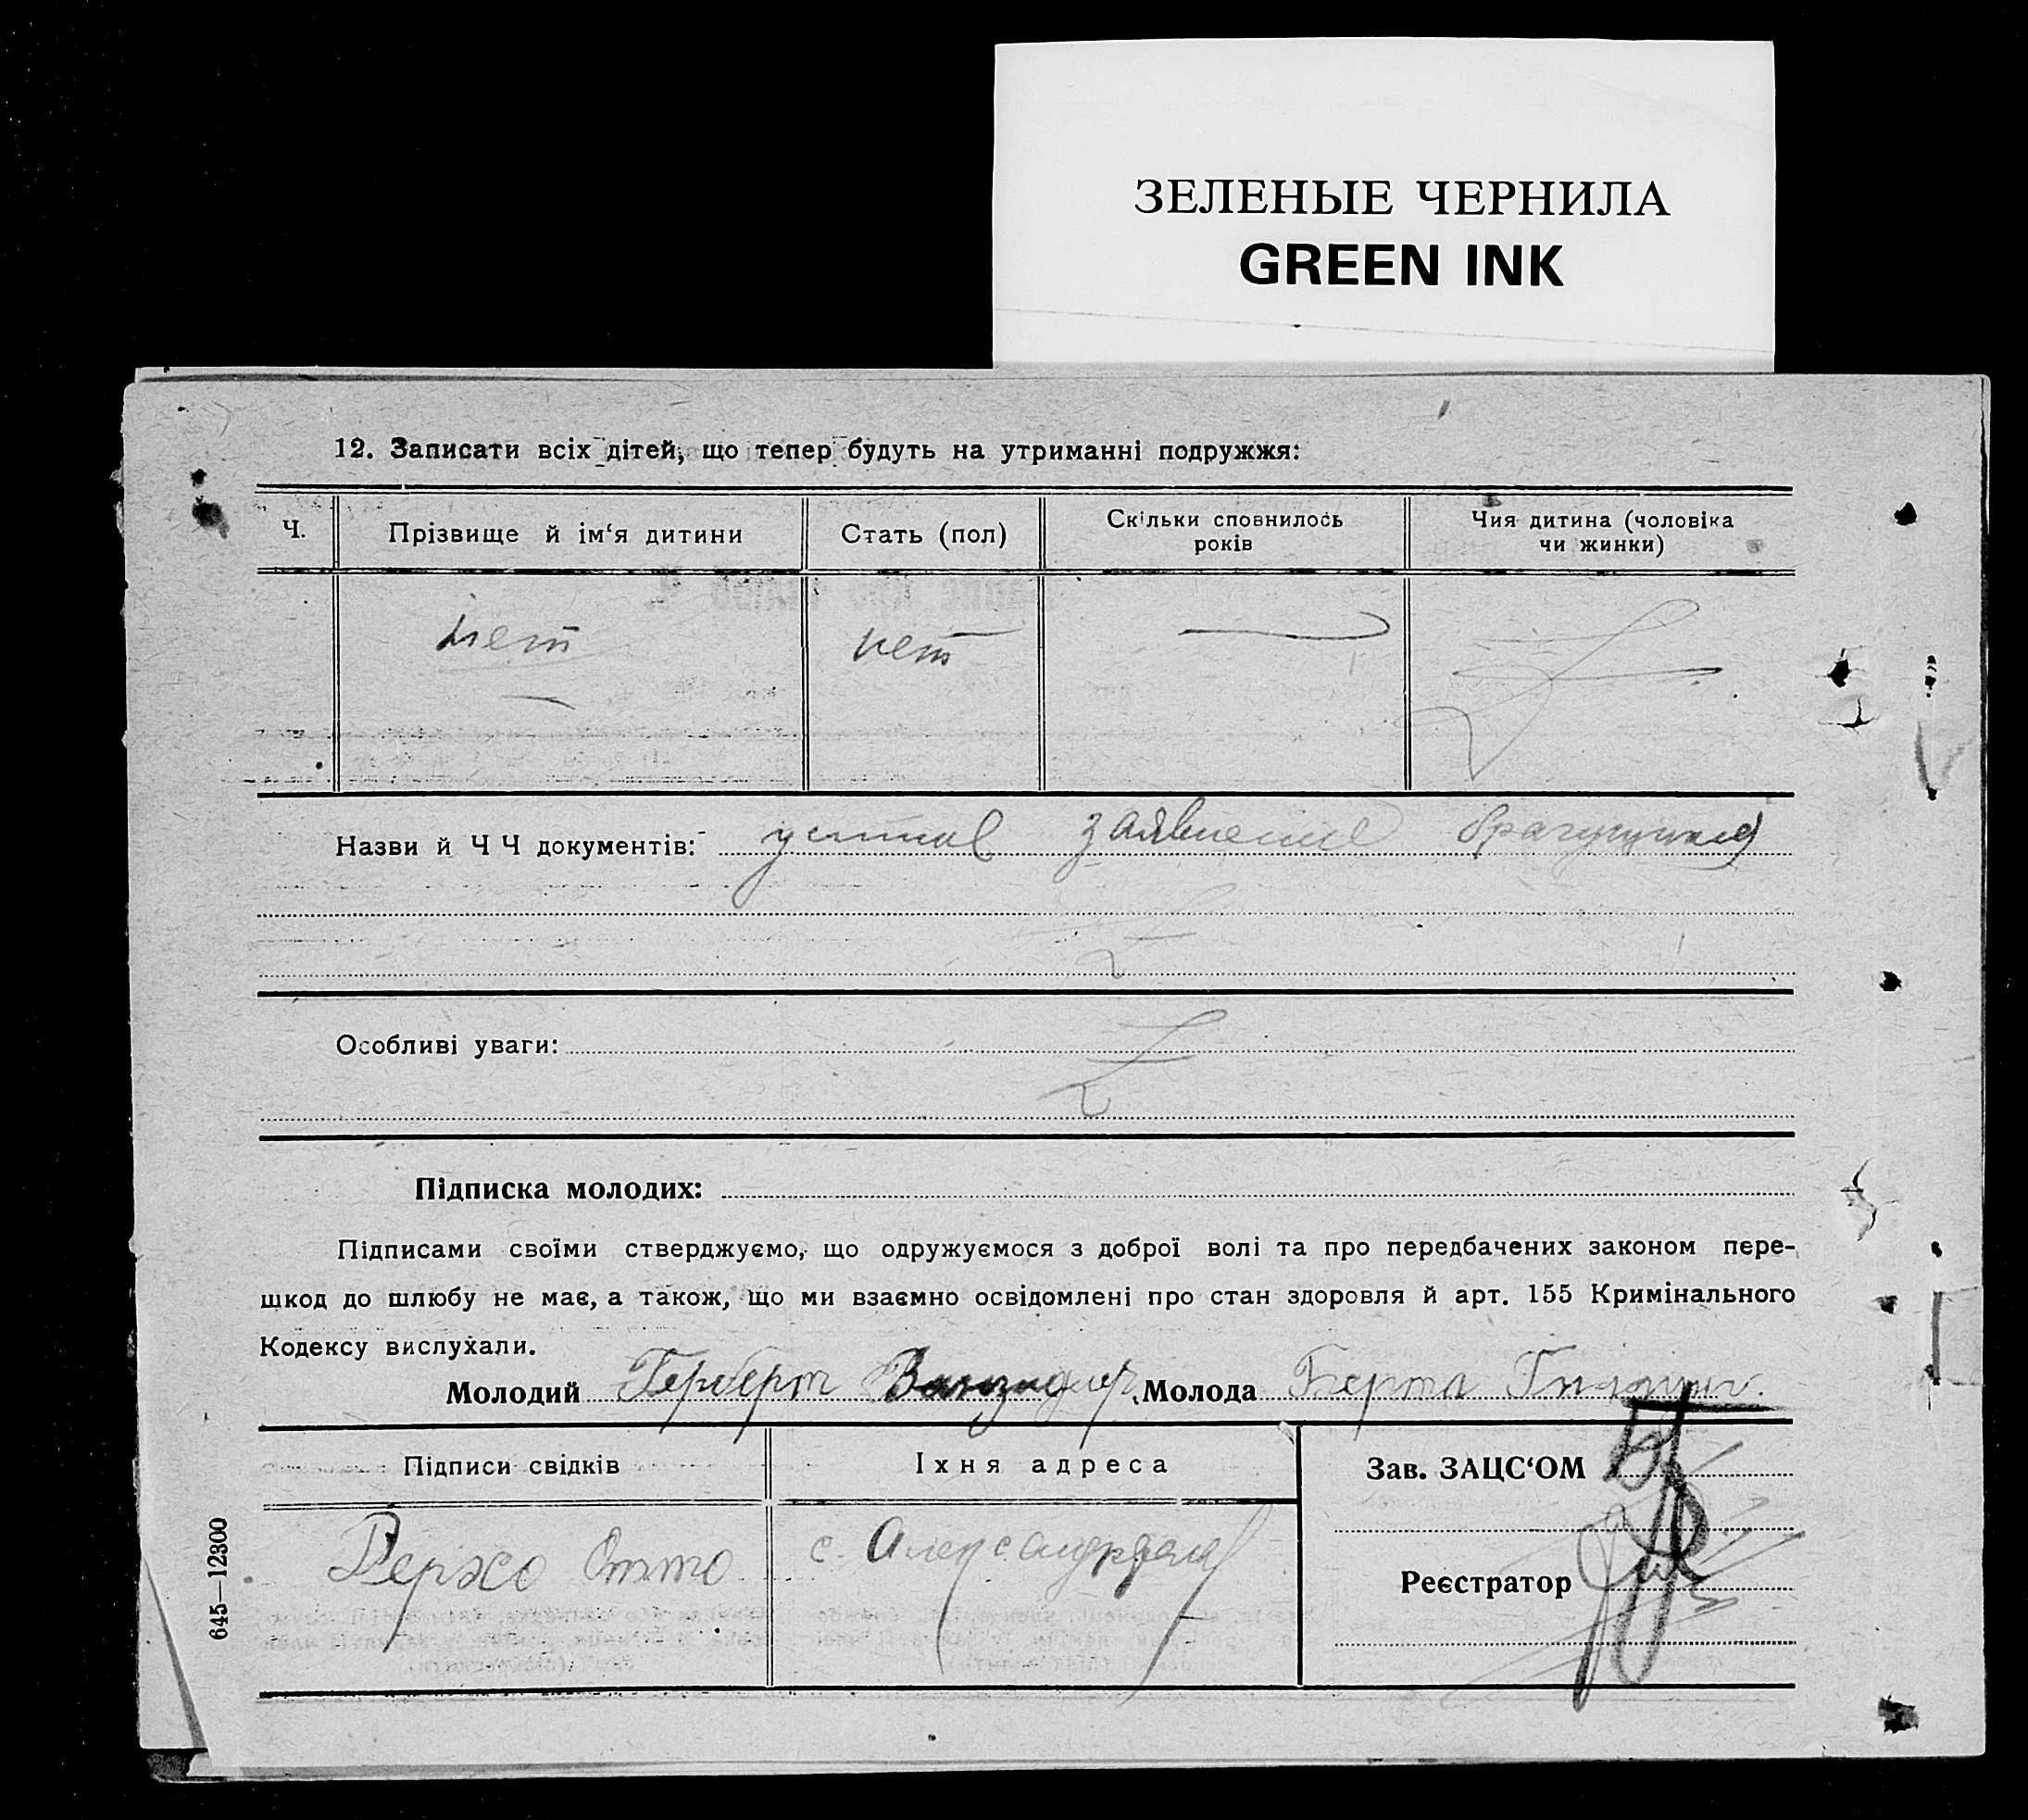 ЗЕЛЕНЫЕ ЧЕРНИЛА
GREEN INK
12. Записати всіх дітей, що тепер будуть на утриманні подружжя:
Ч.
Прізвище й ім‘я дитини
Стать (пол)
Скільки сповнилось
років
Чия дитина (чоловіка
чи жинки)
нет
нет
Назви й Ч Ч документів: устное заявление брачущихся
Особливі уваги:
Підписка молодих:
Підписами своїми стверджуємо, що одружуємося з доброї волі та про передбачених законом пере-
шкод до шлюбу не має, а також, що ми взаємно освідомлені про стан здоровля й арт. 155 Кримінального
Кодексу вислухали.
Молодий Герберт Молода Берта
Підписи свідків
Їхня адреса
Зав. ЗАЦС‘ОМ
Отто
с. Александрдаль
Реєстратор
645—12300